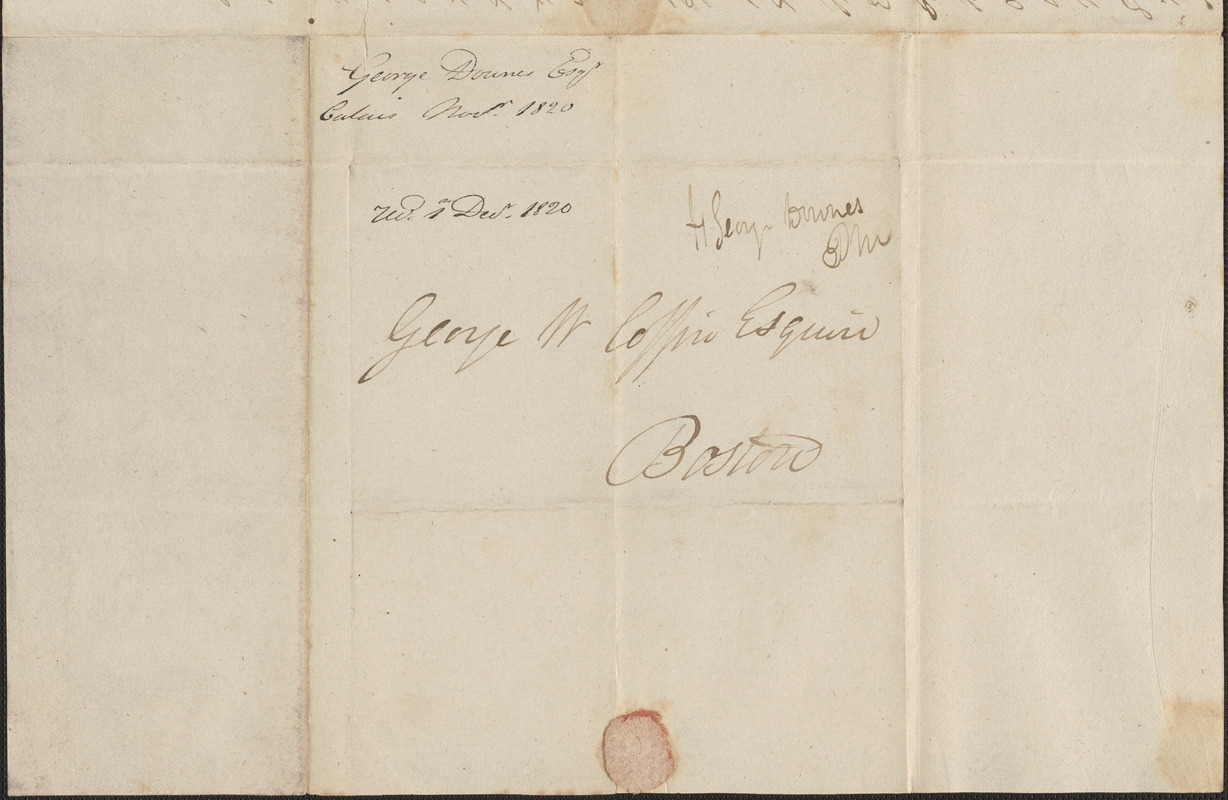 George Downes Esqr
Calais Novr. 1820
Recd. 1 Decr. 1820
George Downes
PM
George W Coffin Esquire
Boston